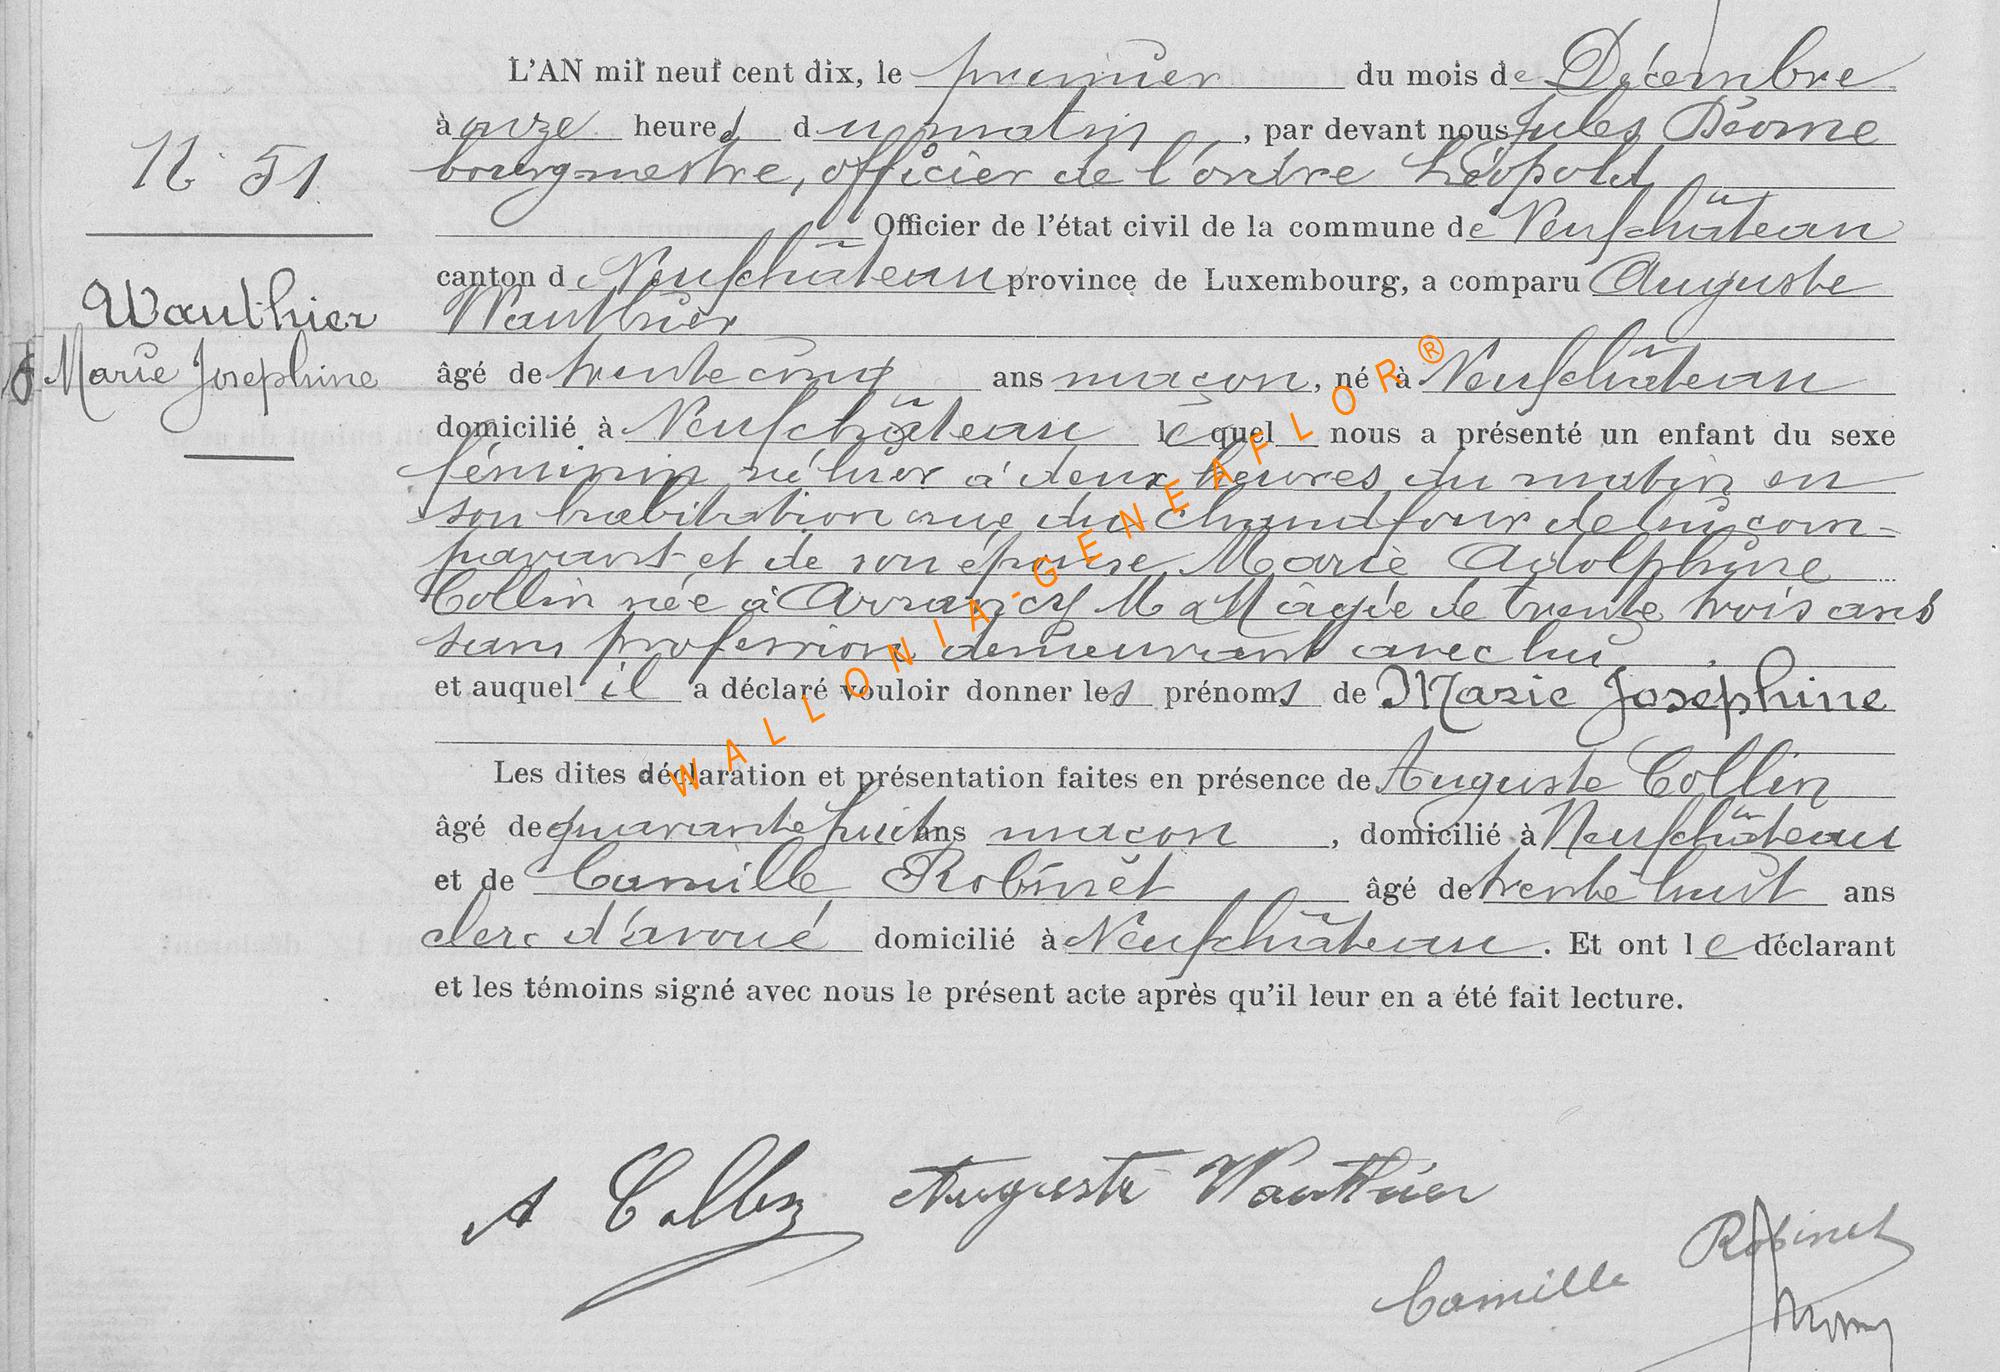 L'AN mil neuf cent dix, le premier du mois de Décembre
à onze heures du matin, par devant nous Jules
bourgmestre, officier de l'ordre Léopold
Officier de l'état civil de la commune de Neufchâteau
canton d Neufchâteau province de Luxembourg, a comparu Auguste
Wauthier
âgé de trente cinq ans maçon, né à Neufchâteau
domicilié à Neufchâteau lequel nous a présenté un enfant du sexe
féminin né hier à deux heures du matin en
son habitation rue du Chaudfour de lui com-
parant et de son épouse Marie Adolphine
Collin née à Arrancy M & M âgée de trente trois ans
sans profession demeurant avec lui
et auquel il a déclaré vouloir donner les prénoms de Marie Josephine
Les dites déclaration et présentation faites en présence de Auguste Collin
âgé de quarante huit ans maçon, domicilié à Neufchâteau
et de Camille Robinet âgé de trente huit ans
clerc d'avoué domicilié à Neufchâteau. Et ont le déclarant
et les témoins signé avec nous le présent acte après qu'il leur en a été fait lecture.
N° 51
Wauthier
Marie Josephine
WALLONIA-GENEAFLOR®
A Collin Auguste Wauthier
Camille Robinet